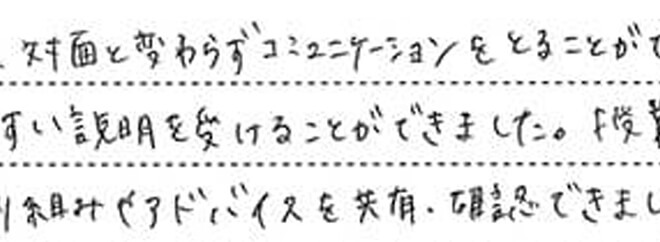 、対面と変わらずコミュニケーションをとることがで
すい説明を受けることができました。授業
り組みやアドバイスを共有・確認できまし